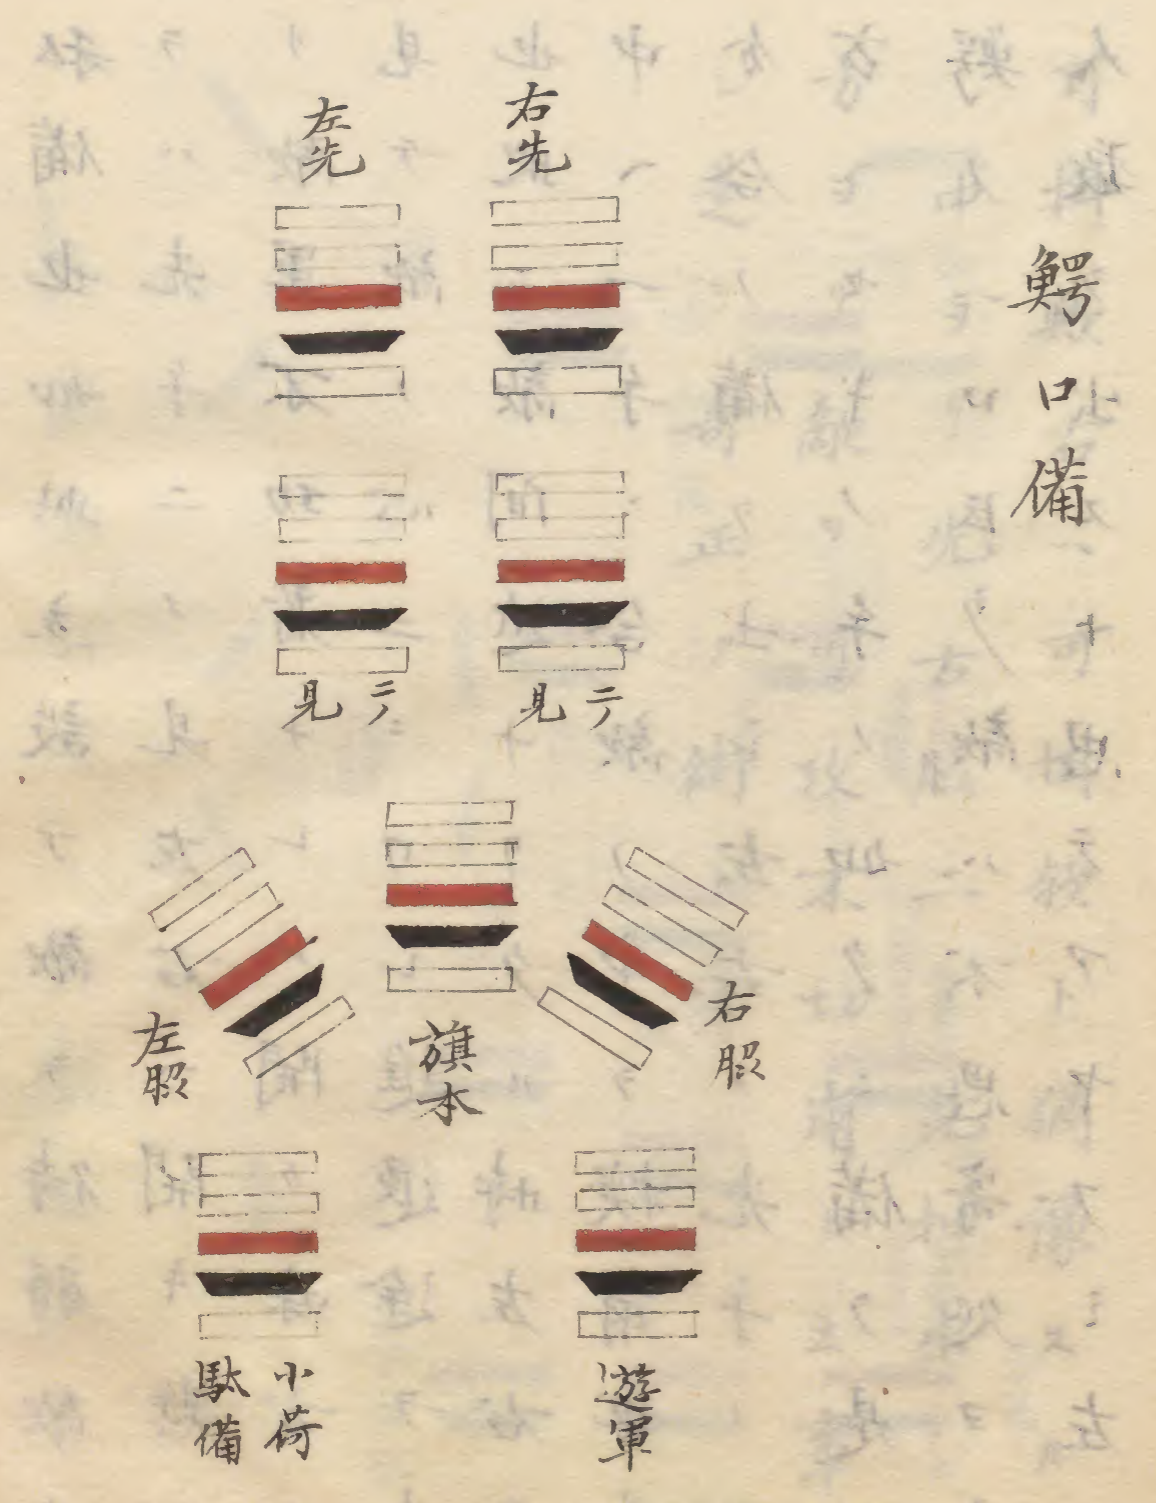 鰐口備
右先
左先
二ノ見
二ノ見
右脇
旗本
左脇
遊軍
小荷駄備